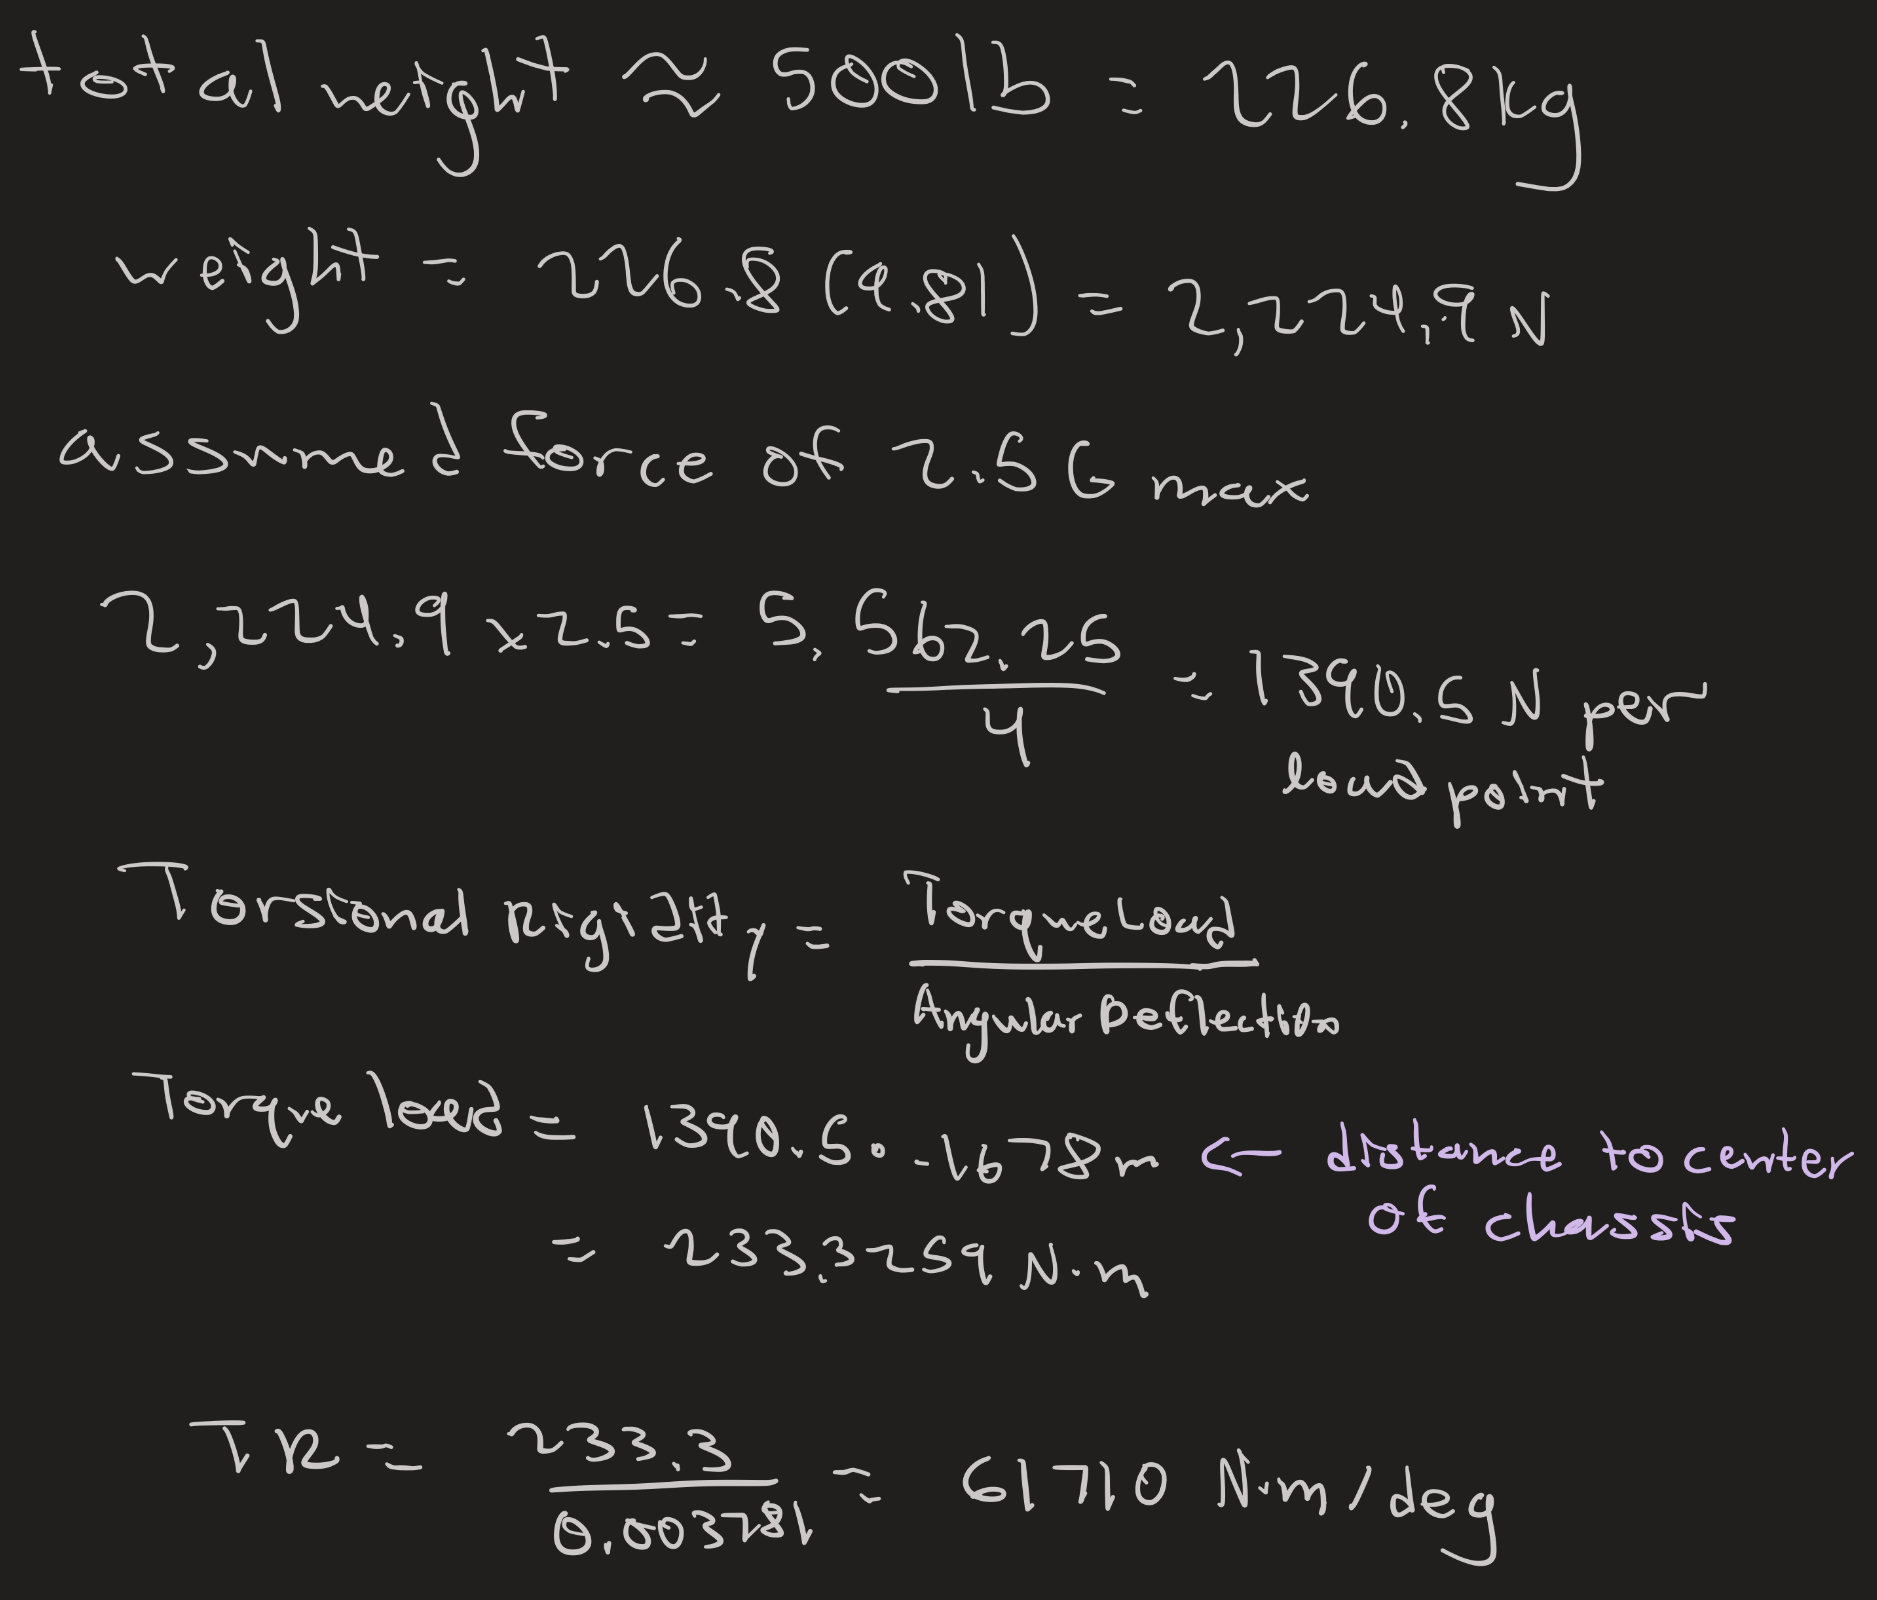 total weight ≈ 500lb = 226.8kg
weight = 226.8 (9.81) = 2,224.9 N
assumed force of 2.5 G max
2,224.9 x 2.5 = 5,562.25 / 4 = 1390.5 N per
load point
Torsional Rigidity = Torque Load / Angular Deflection
Torque load = 1390.5 · .1678m ← distance to center
of chassis
= 233.3259 N·m
TR = 233.3 / 0.003781 = 61710 N·m/deg